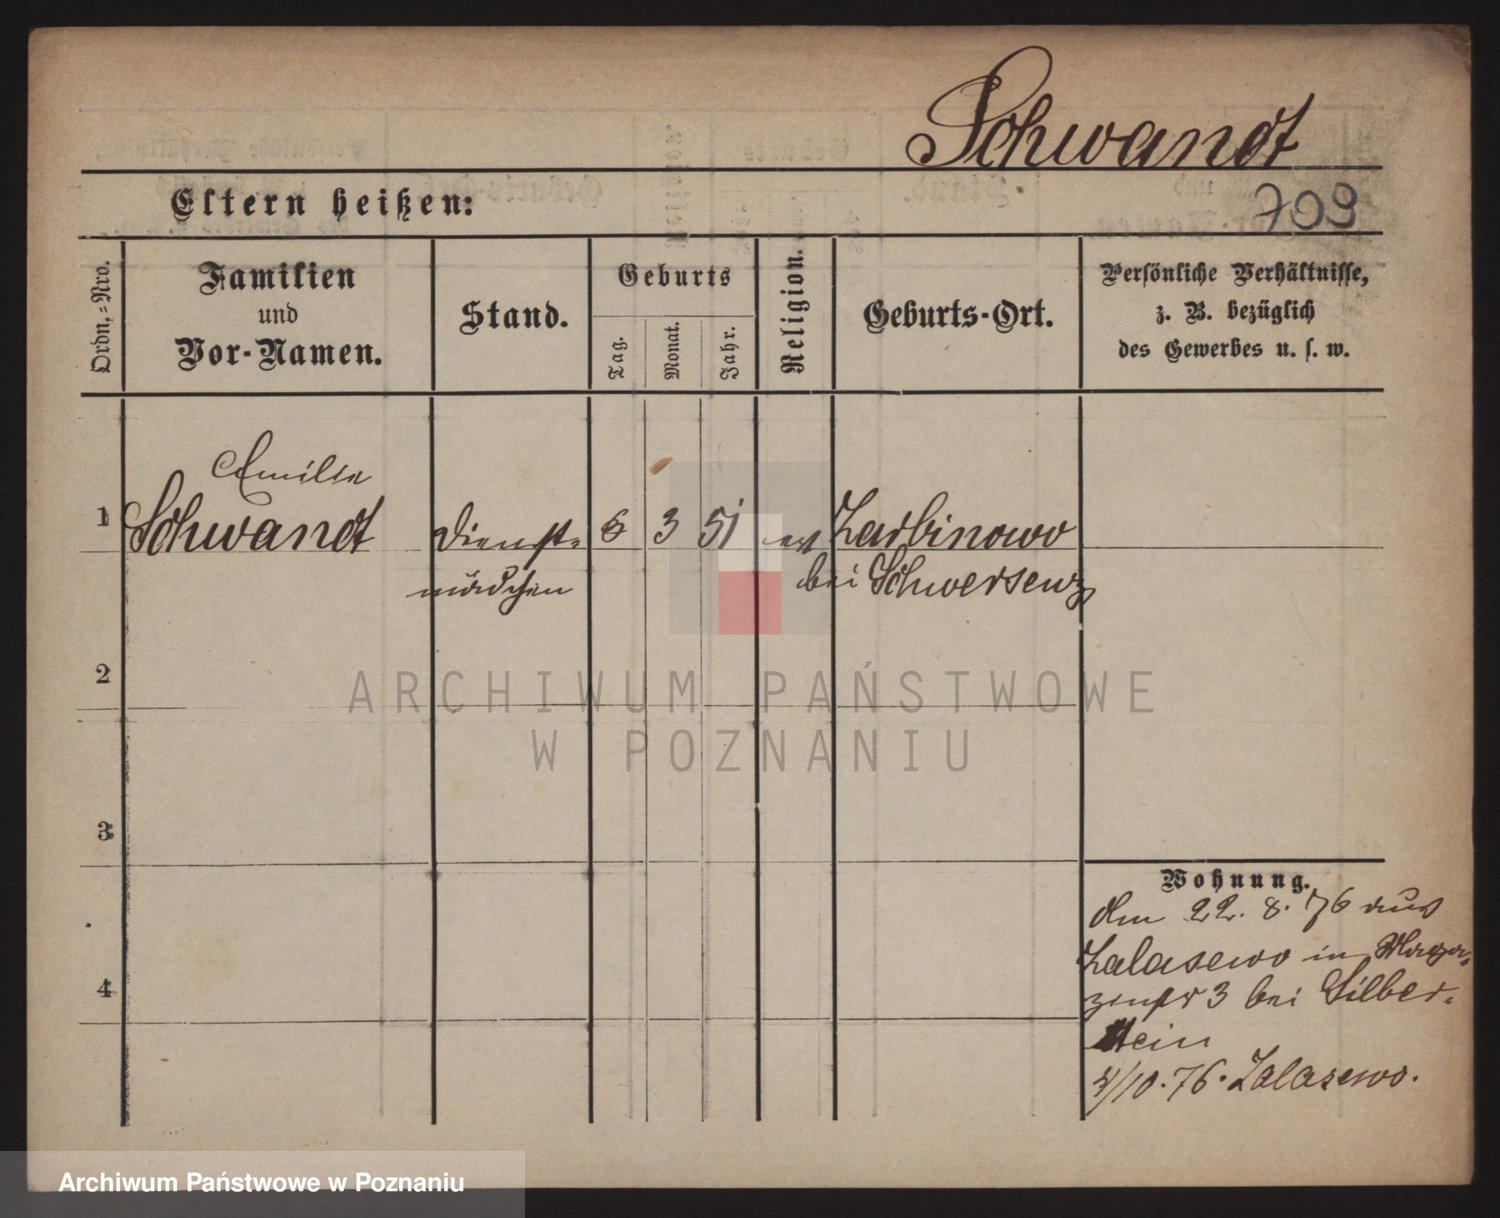 Schwandt
Eltern heißen:
709
Ordn.-Nro.
Familien
und
Vor-Namen.
Stand.
Geburts
Tag.
Monat.
Jahr.
Religion.
Geburts-Ort.
Persönliche Verhältnisse,
z. B. bezüglich
des Gewerbes u. s. w.
Emilie
1 Schwandt Dienst- 6 3 51 ev Zarbinowo
mädchen bei Schwersenz
2
3
4
Wohnung.
den 22. 8. 76 aus
Zalasewo in Maga-
zinstr 3 bei Silber-
stein
4/10. 76. Zalasewo.
ARCHIWUM PAŃSTWOWE
W POZNANIU
Archiwum Państwowe w Poznaniu